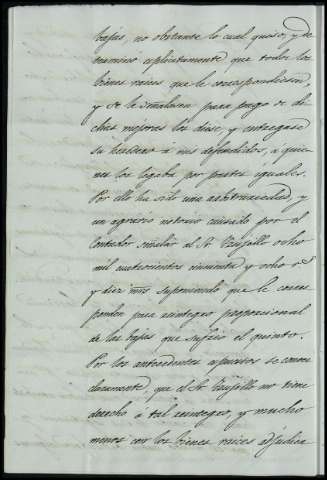 bajas, no obstante lo cual quiso, y de
terminó espresamente que todos los
bienes raices que le correspondiesen
y se le señalasen para pago de di
chas mejoras los diese, y entregase
su heredero á mis defendidos, á quie
nes los legaba por partes iguales.
Por ello ha sido una arbitrariedad, y
un agravio notorio causado por el
Contador señalar al Sr. Trujillo ocho
mil cuatrocientos cincuenta y ocho r.s
y diez mrs suponiendo que le corres
ponden para reintegro proporcional
de las bajas que sufrió el quinto.
Por los antecedentes espuestos se conoce
claramente, que el Sr. Trujillo no tiene
derecho á tal reintegro, y mucho
menos con los bienes raices adjudica